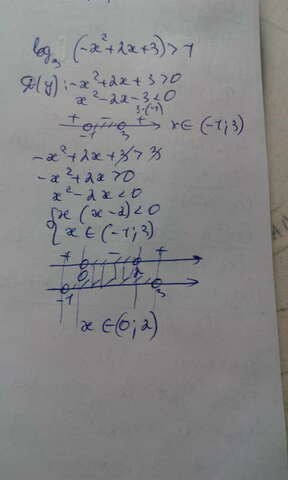 log₃ (-x²+2x+3)>1
D(y): -x²+2x+3>0
x²-2x-3<0
3·(-1)
+ - + x∈(-1;3)
-1 3
-x²+2x+3>3
-x²+2x>0
x²-2x<0
{ x(x-2)<0
x∈(-1;3)
+ - +
0 2
-1 3
x∈(0;2)